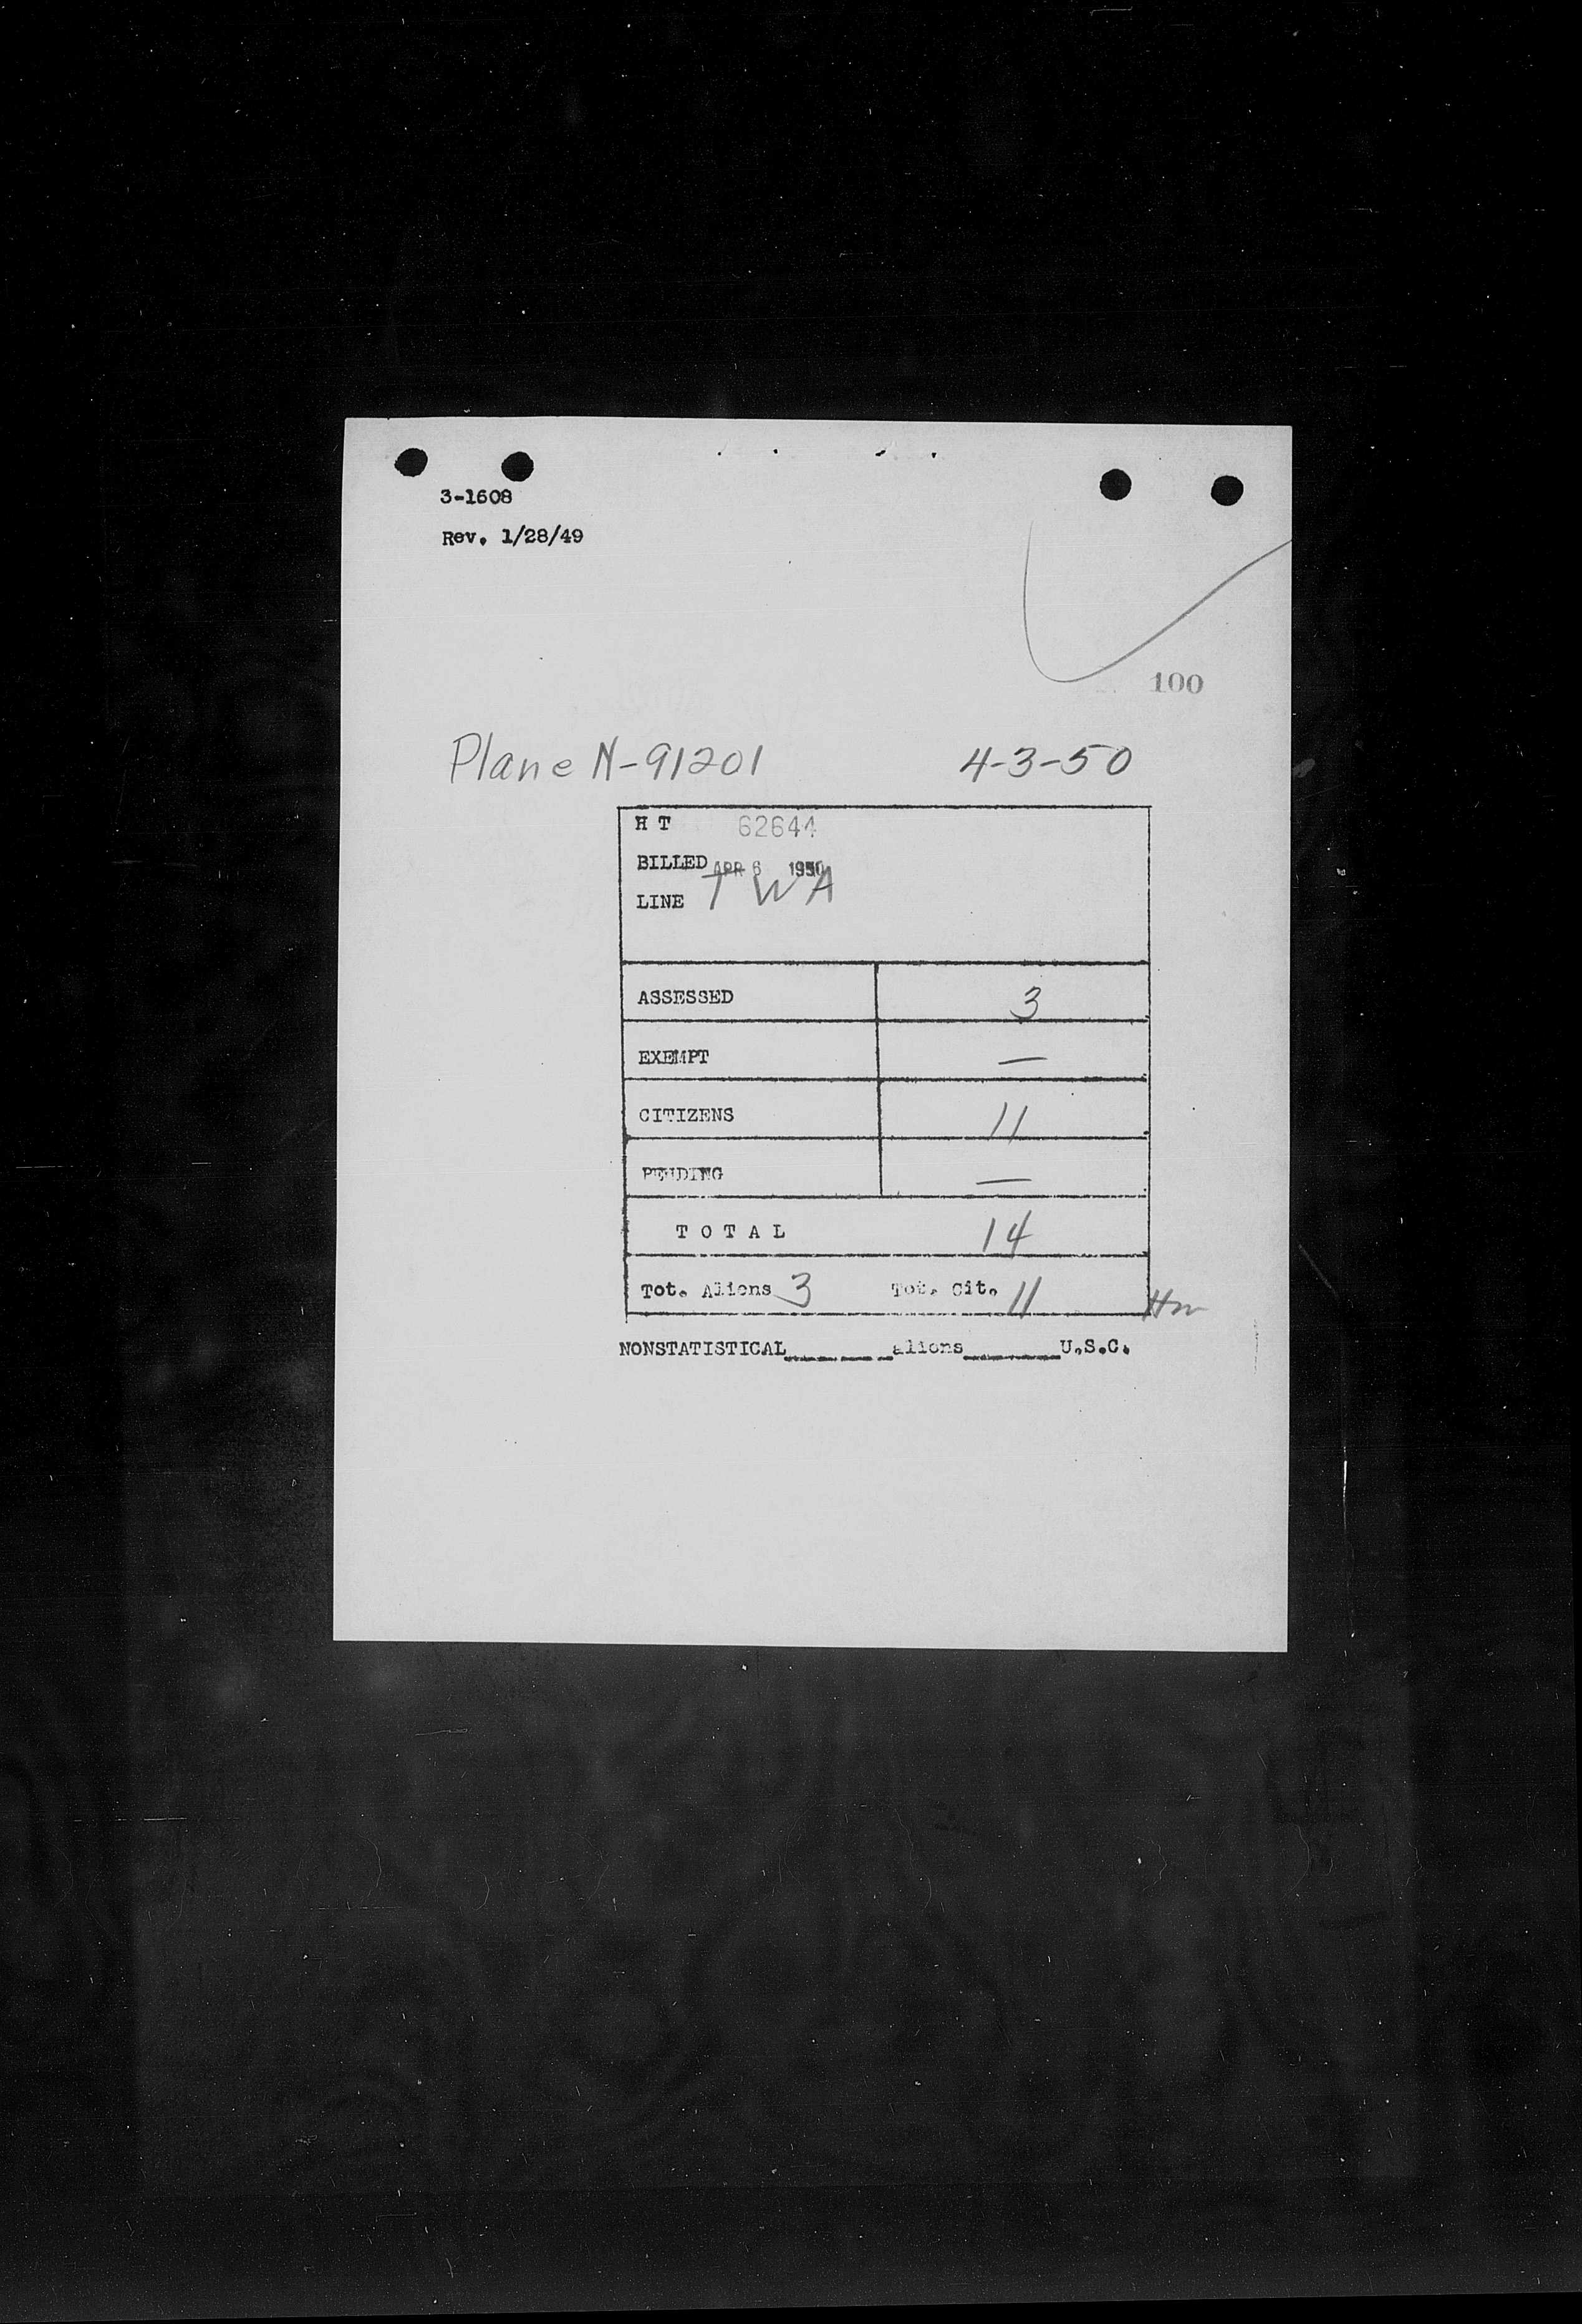 3-1608
Rev. 1/28/49
100
Plane N-91201 4-3-50
H T 62644
BILLED APR 6 1950
LINE TWA
ASSESSED 3
EXEMPT —
CITIZENS 11
PENDING —
T O T A L 14
Tot. Aliens 3 Tot. Cit. 11
NONSTATISTICAL______aliens______U.S.C.